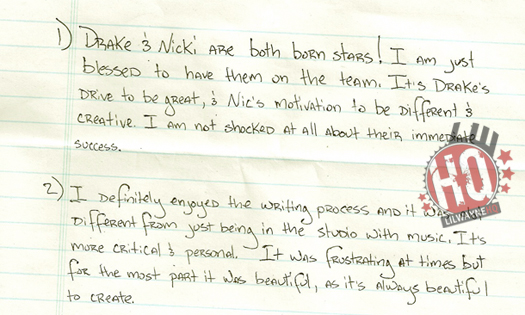 1) Drake & Nicki are both born stars! I am just
blessed to have them on the team. It's Drake's
drive to be great, & Nic's motivation to be different &
creative. I am not shocked at all about their immediate
success.
2) I definitely enjoyed the writing process and it was
different from just being in the studio with music. It's
more critical & personal. It was frustrating at times but
for the most part it was beautiful, as it's always beautiful
to create.
HQ
LILWAYNE